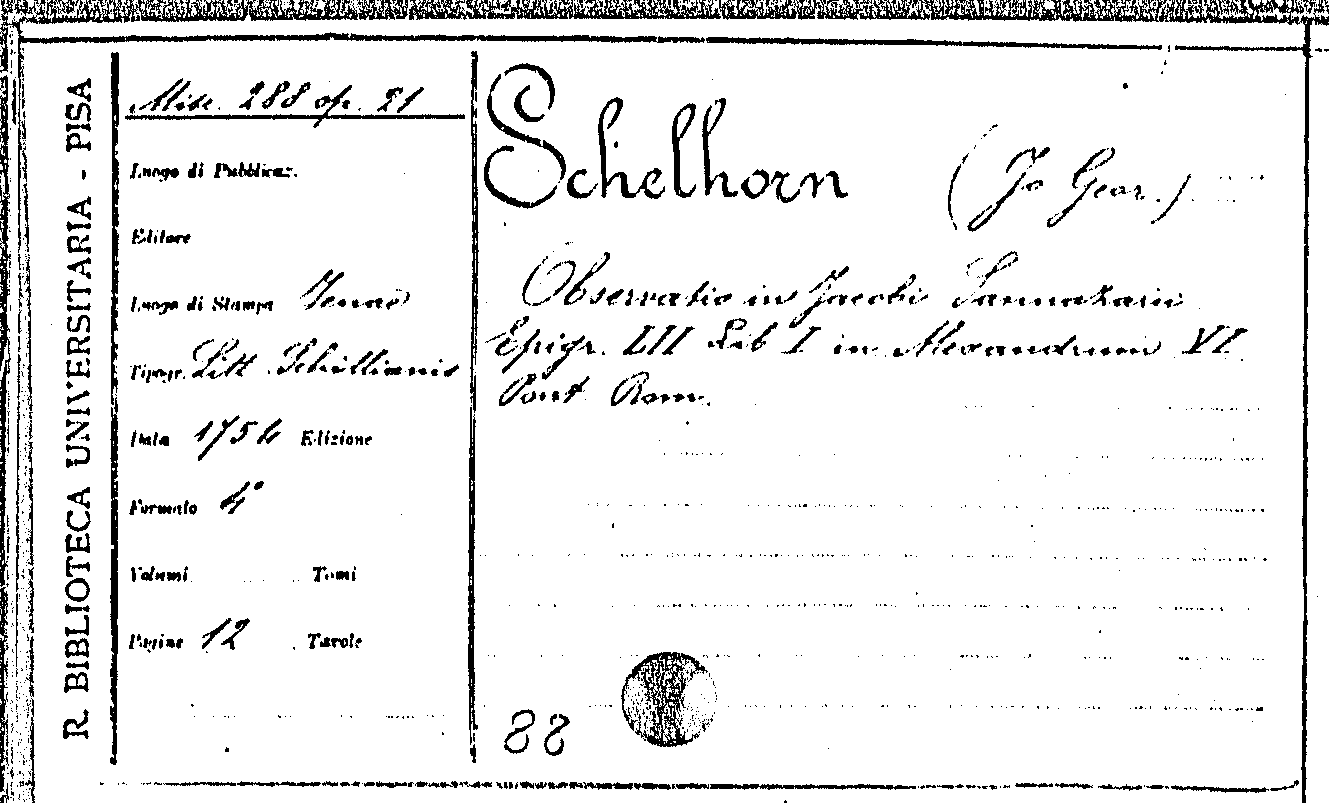 R. BIBLIOTECA UNIVERSITARIA - PISA
Misc. 288 op. 21
Luogo di Pubblicaz.
Editore
Luogo di Stampa Jenae
Tipogr. Litt. Schillianis
Data 1754 Edizione
Formato 4°
Volumi Tomi
Pagine 12 Tavole
Schelhorn (Jo Geor.)
Observatio in Jacobi Sannazarii
Epigr. LII Lib I in Alexandrum VI
Pont Rom.
88